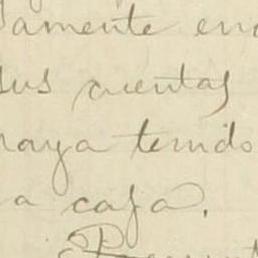 samente en
sus cuentas
haya tenido
a casa.